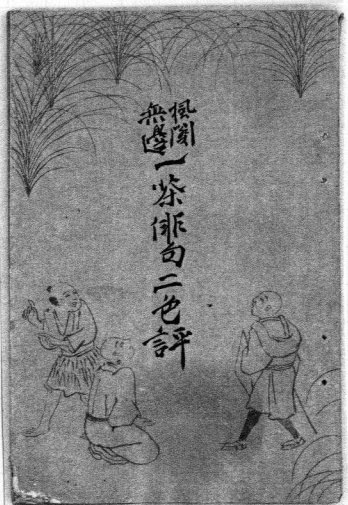 楓
無邊
一茶俳句二色評